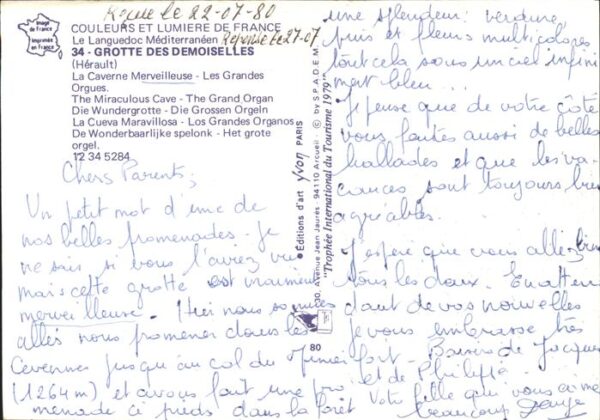 Reçue le 22-07-80
Réponse le 27-07
Image
de France
Imprimée en
France
COULEURS ET LUMIERE DE FRANCE
Le Languedoc Méditerranéen
34 - GROTTE DES DEMOISELLES
(Hérault)
La Caverne Merveilleuse - Les Grandes
Orgues.
The Miraculous Cave - The Grand Organ
Die Wundergrotte - Die Grossen Orgeln
La Cueva Maravillosa - Los Grandes Organos
De Wonderbaarlijke spelonk - Het grote
orgel.
12 34 5284
Chers Parents,
Un petit mot d'une de
nos belles promenades. Je
ne sais si vous l'aurez vue
mais cette grotte est vraiment
merveilleuse. Hier nous sommes
allés nous promener dans les
Cévennes jusqu'au col du
(1264 m) et avons fait une pro
menade à pieds dans la forêt
Editions d'art yvon PARIS
30, Avenue Jean Jaurès - 94110 Arcueil - © by S.P.A.D.E.M.
"Trophée International du Tourisme 1979"
80
une splendeur : verdure
puis et fleurs multicolores
tout cela sous un ciel infini
ment bleu...
Je pense que de votre côté
vous faites aussi de belles
ballades et que les va
cances sont toujours très
agréables.
J'espère que vous allez bien
tous les deux. En atten
dant de vos nouvelles
je vous embrasse très
fort. Baisers de Jacques
et de Philippe
Votre fille qui vous aime
beaucoup